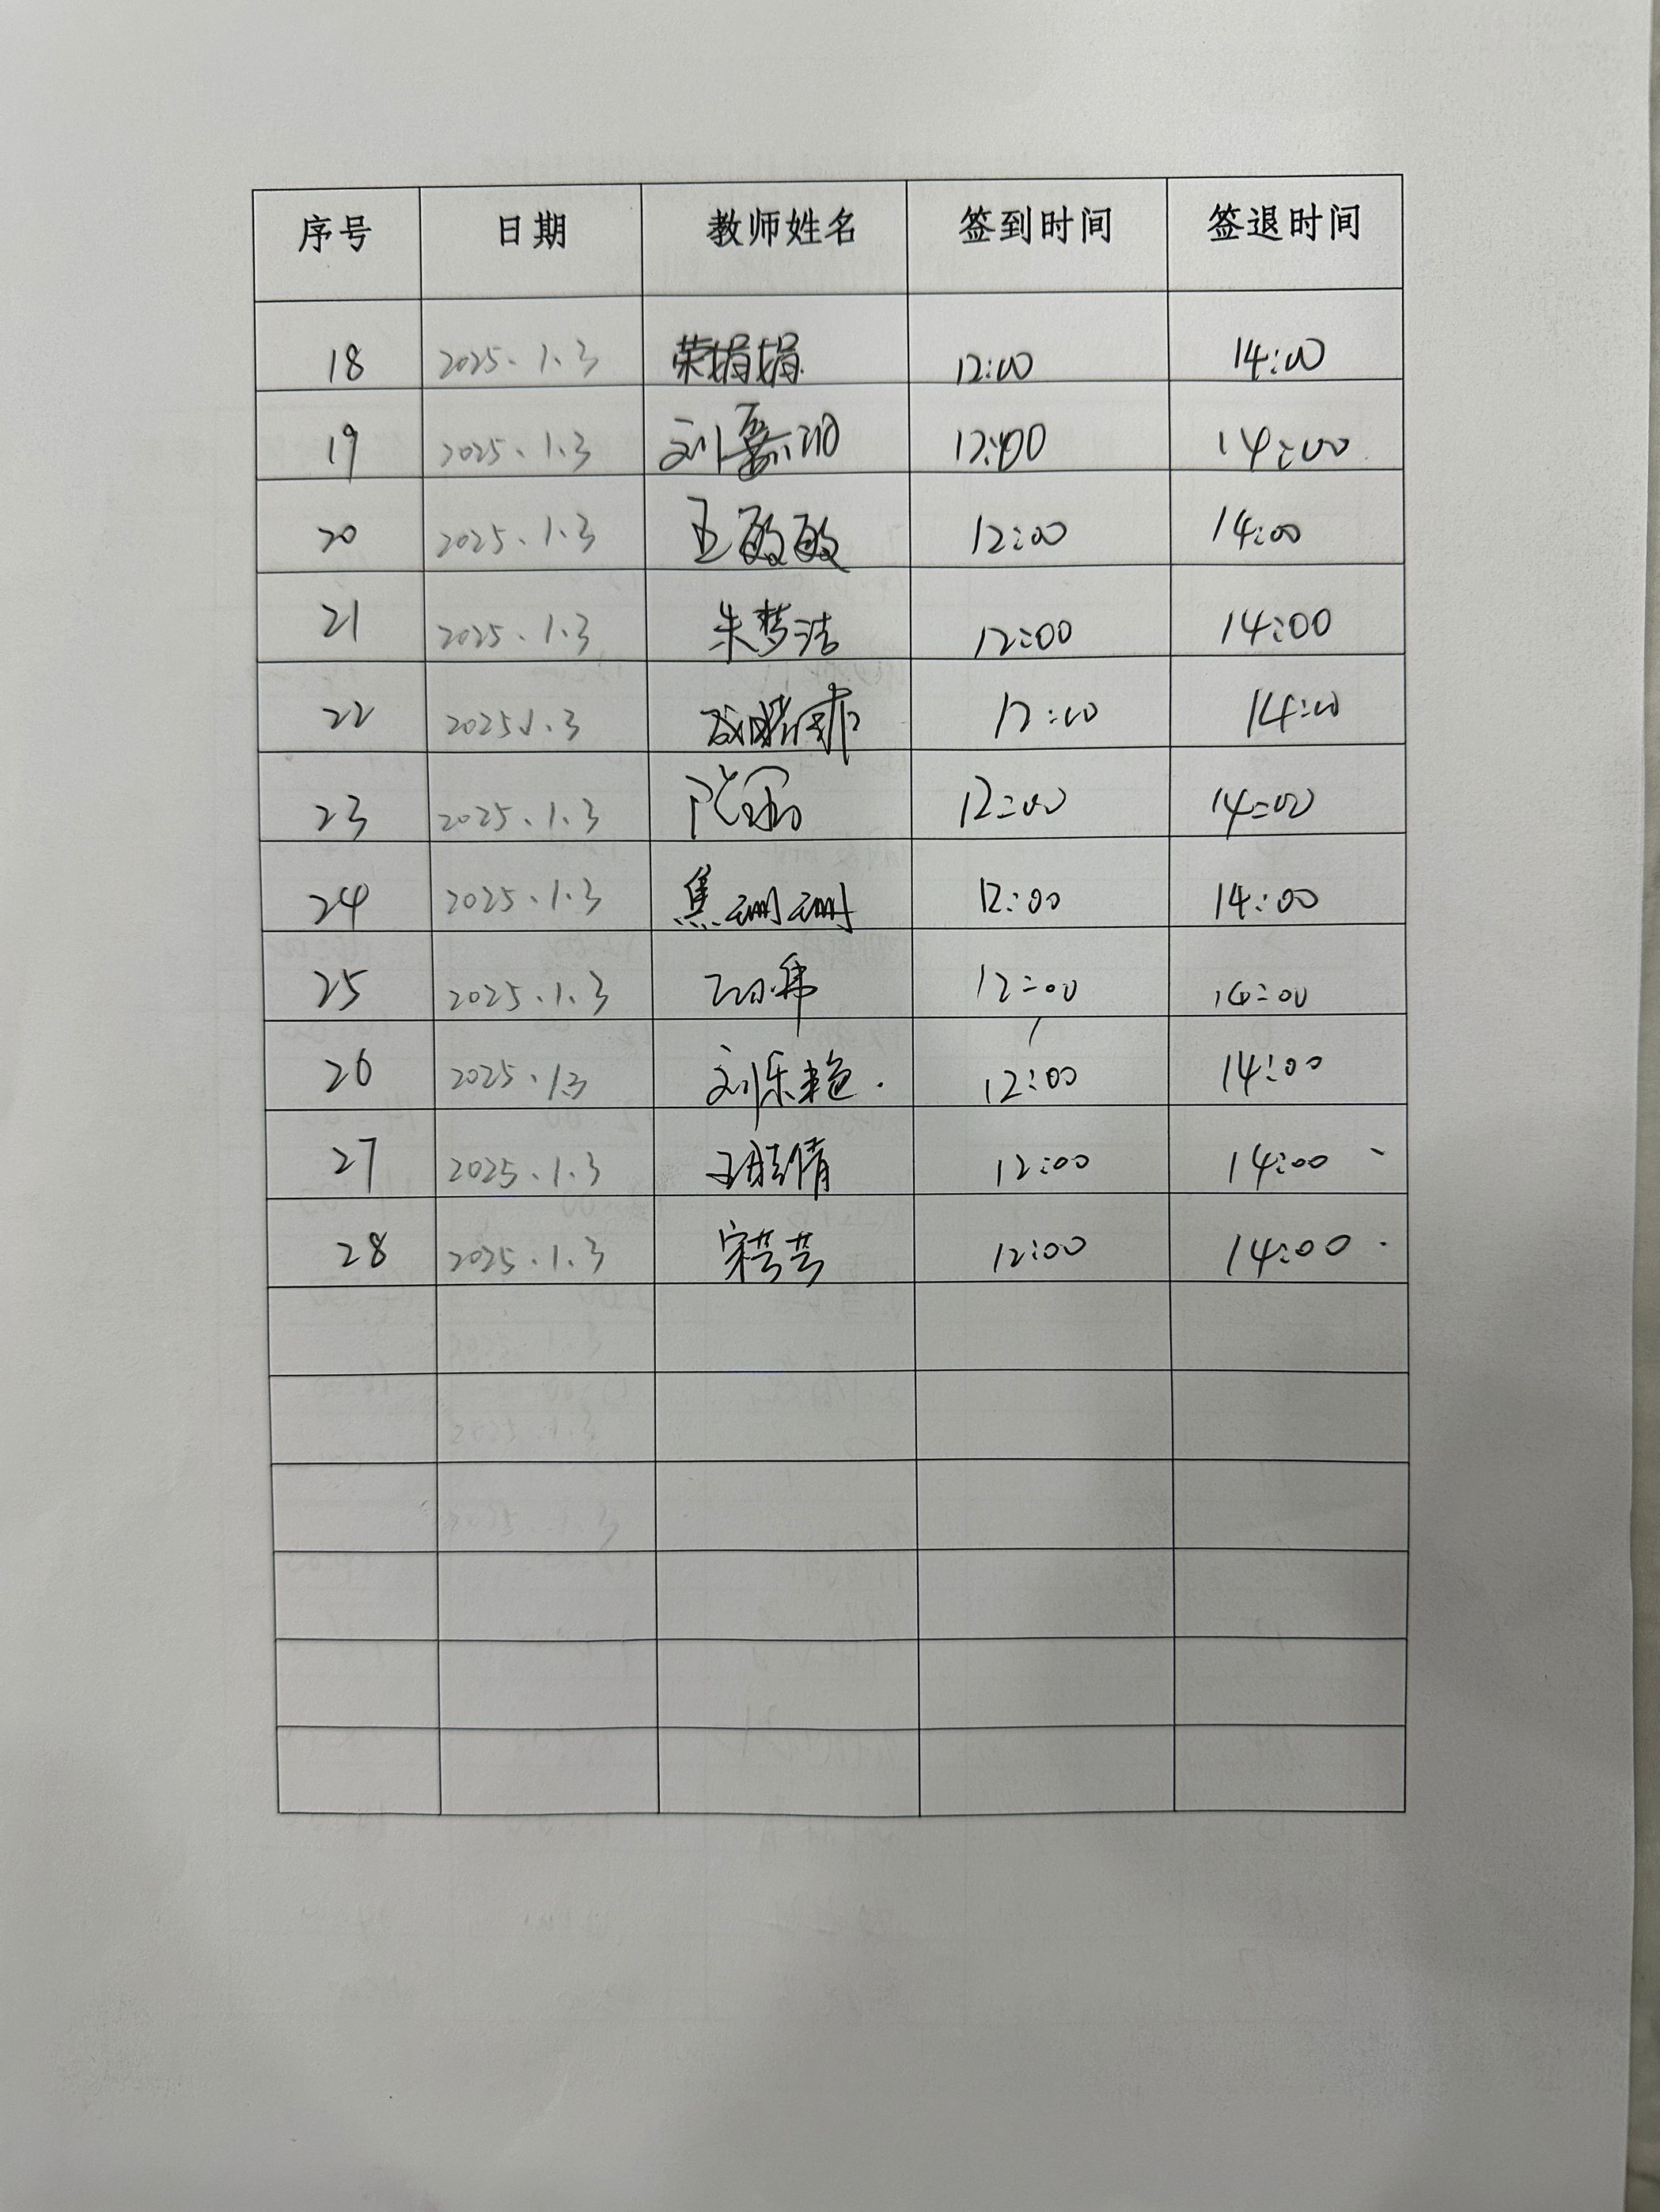 序号 日期 教师姓名 签到时间 签退时间
18 2025.1.3 荣娟娟 12:00 14:00
19 2025.1.3 刘 12:00 14:00
20 2025.1.3 王敏敏 12:00 14:00
21 2025.1.3 朱梦洁 12:00 14:00
22 2025.1.3 12:00 14:00
23 2025.1.3 12:00 14:00
24 2025.1.3 焦珊珊 12:00 14:00
25 2025.1.3 12:00 14:00
26 2025.1.3 刘乐艳 12:00 14:00
27 2025.1.3 王 倩 12:00 14:00
28 2025.1.3 宋芸芸 12:00 14:00